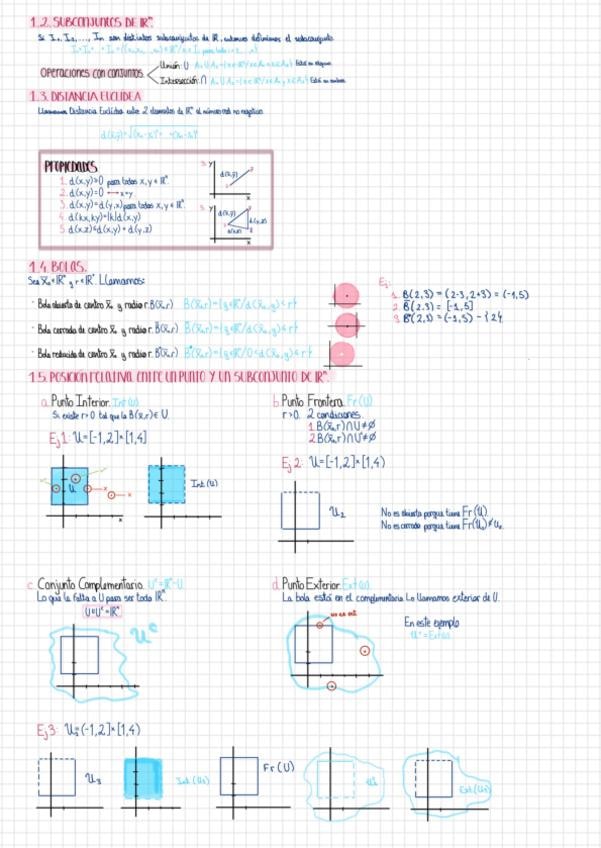 1.2. SUBCONJUNTOS DE ℝⁿ.
Si I₁, I₂, ..., Iₙ son distintos subconjuntos de ℝ, entonces definimos el subconjunto
Operaciones con conjuntos.
Unión: ∪
Intersección: ∩
1.3. DISTANCIA EUCLIDEA
Llamamos Distancia Euclidea entre 2 elementos de ℝⁿ al número real no negativo
PROPIEDADES
1. d(x,y)≥0 para todos x,y ∈ ℝⁿ.
2. d(x,y)=0 ⟷ x=y
3. d(x,y)=d(y,x) para todos x,y ∈ ℝⁿ.
4. d(kx,ky)=|k|d(x,y)
5. d(x,z)≤d(x,y)+d(y,z)
3. y
d(x,y)
x
5. y
d(x,y)
d(y,z)
d(x,z)
x
1.4. BOLAS.
Sea x̄₀∈ℝⁿ y r∈ℝ⁺. Llamamos:
· Bola abierta de centro x̄₀ y radio r. B(x̄₀,r) B(x̄₀,r)={y∈ℝⁿ/d(x̄₀,y)<r}
· Bola cerrada de centro x̄₀ y radio r.
· Bola reducida de centro x̄₀ y radio r.
Ej:
1. B(2,3) = (2-3, 2+3) = (-1,5)
2. B̄(2,3) = [-1,5]
3. B*(2,3) = (-1,5) - {2}
1.5. POSICIÓN RELATIVA ENTRE UN PUNTO Y UN SUBCONJUNTO DE ℝⁿ.
a. Punto Interior. Int(U)
Si existe r>0 tal que la B(x̄,r)∈U.
Ej 1: U=[-1,2]×[1,4]
U
x
x
x
Int(U)
b. Punto Frontera. Fr(U)
r>0. 2 condiciones.
1. B(x̄,r)∩U≠∅
2. B(x̄,r)∩Uᶜ≠∅
Ej 2: U=[-1,2]×[1,4)
U₂
No es abierto porque tiene Fr(U).
No es cerrado porque tiene
c. Conjunto Complementario. Uᶜ=ℝⁿ-U
Lo que le falta a U para ser todo ℝⁿ.
U∪Uᶜ=ℝⁿ
Uᶜ
d. Punto Exterior. Ext(U)
La bola está en el complementario. Lo llamamos exterior de U.
no es ext
En este ejemplo
Ej 3: U₃=(-1,2]×[1,4)
U₃
Int(U₃)
Fr(U)
Ext(U₃)